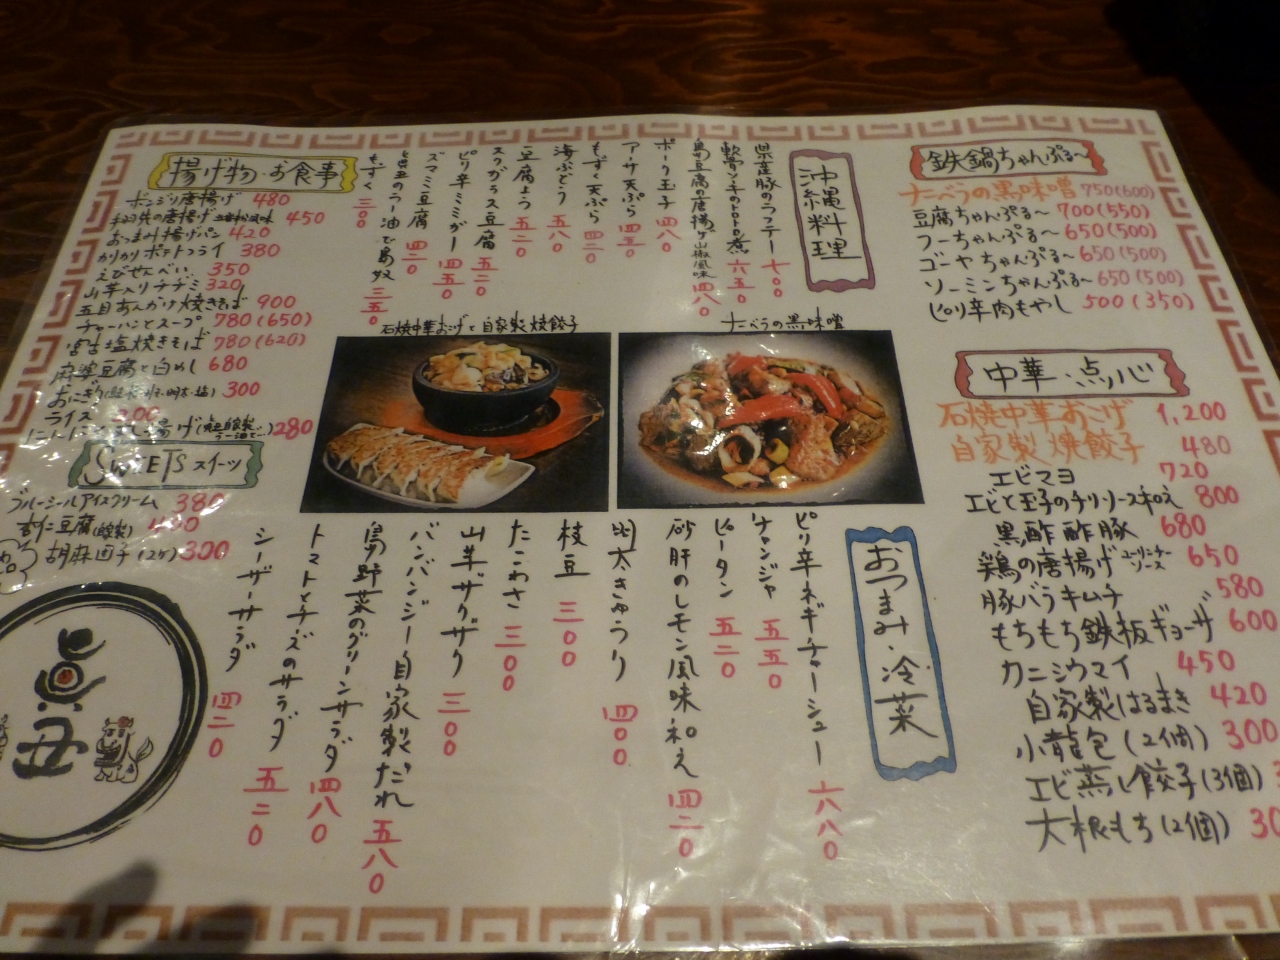 鉄鍋ちゃんぷる〜
ナーベラの黒味噌 750(600)
豆腐ちゃんぷる〜 700(550)
フーちゃんぷる〜 650(500)
ゴーヤちゃんぷる〜 650(500)
ソーミンちゃんぷる〜 650(500)
ピリ辛肉もやし 500(350)
中華・点心
石焼中華おこげ 1,200
自家製焼餃子 480
エビマヨ 720
エビと玉子のチリソース和え 800
黒酢酢豚 680
鶏の唐揚げ ユーリンチーソース 650
豚バラキムチ 580
もちもち鉄板ギョーザ 600
カニシウマイ 450
自家製はるまき 420
小龍包(2個) 300
エビ蒸し餃子(3個)
大根もち(2個) 30
沖縄料理
県産豚のラフテー 七〇〇
軟骨ソーキのトロトロ煮 六五〇
島豆腐の唐揚げ 山椒風味 四八〇
ポーク玉子 四八〇
アーサ天ぷら 四五〇
もずく天ぷら 四二〇
海ぶどう 五八〇
豆腐よう 五二〇
スクガラス豆腐 五二〇
ピリ辛ミミガー 四五〇
ズマミ豆腐 四二〇
自家製焼餃子
島奴 三五〇
もずく 三〇〇
揚げ物・お食事
ボンジリ唐揚げ 480
450
おつまみ揚げパン 420
かりかりポテトフライ 380
えびせんべい 350
山芋入りチヂミ 320
五目あんかけ焼きそば 900
チャーハンとスープ 780(650)
宮古塩焼きそば 780(620)
麻婆豆腐と白めし 680
おにぎり 300
ライス 200
280
SWEETS スイーツ
ブルーシールアイスクリーム 380
杏仁豆腐(自家製) 400
胡麻団子(2ケ) 300
石焼中華おこげと自家製焼餃子
ナーベラの黒味噌
おつまみ・冷菜
ピリ辛ネギチャーシュー 六八〇
チャンジャ 五五〇
ピータン 五二〇
砂肝のレモン風味和え 四二〇
太きゅうり 四〇〇
枝豆 三〇〇
たこわさ 三〇〇
山芋ザクザク 三〇〇
バンバンジー自家製だれ 五八〇
島野菜のグリーンサラダ 四八〇
トマトとチーズのサラダ 五二〇
シーザーサラダ 四二〇